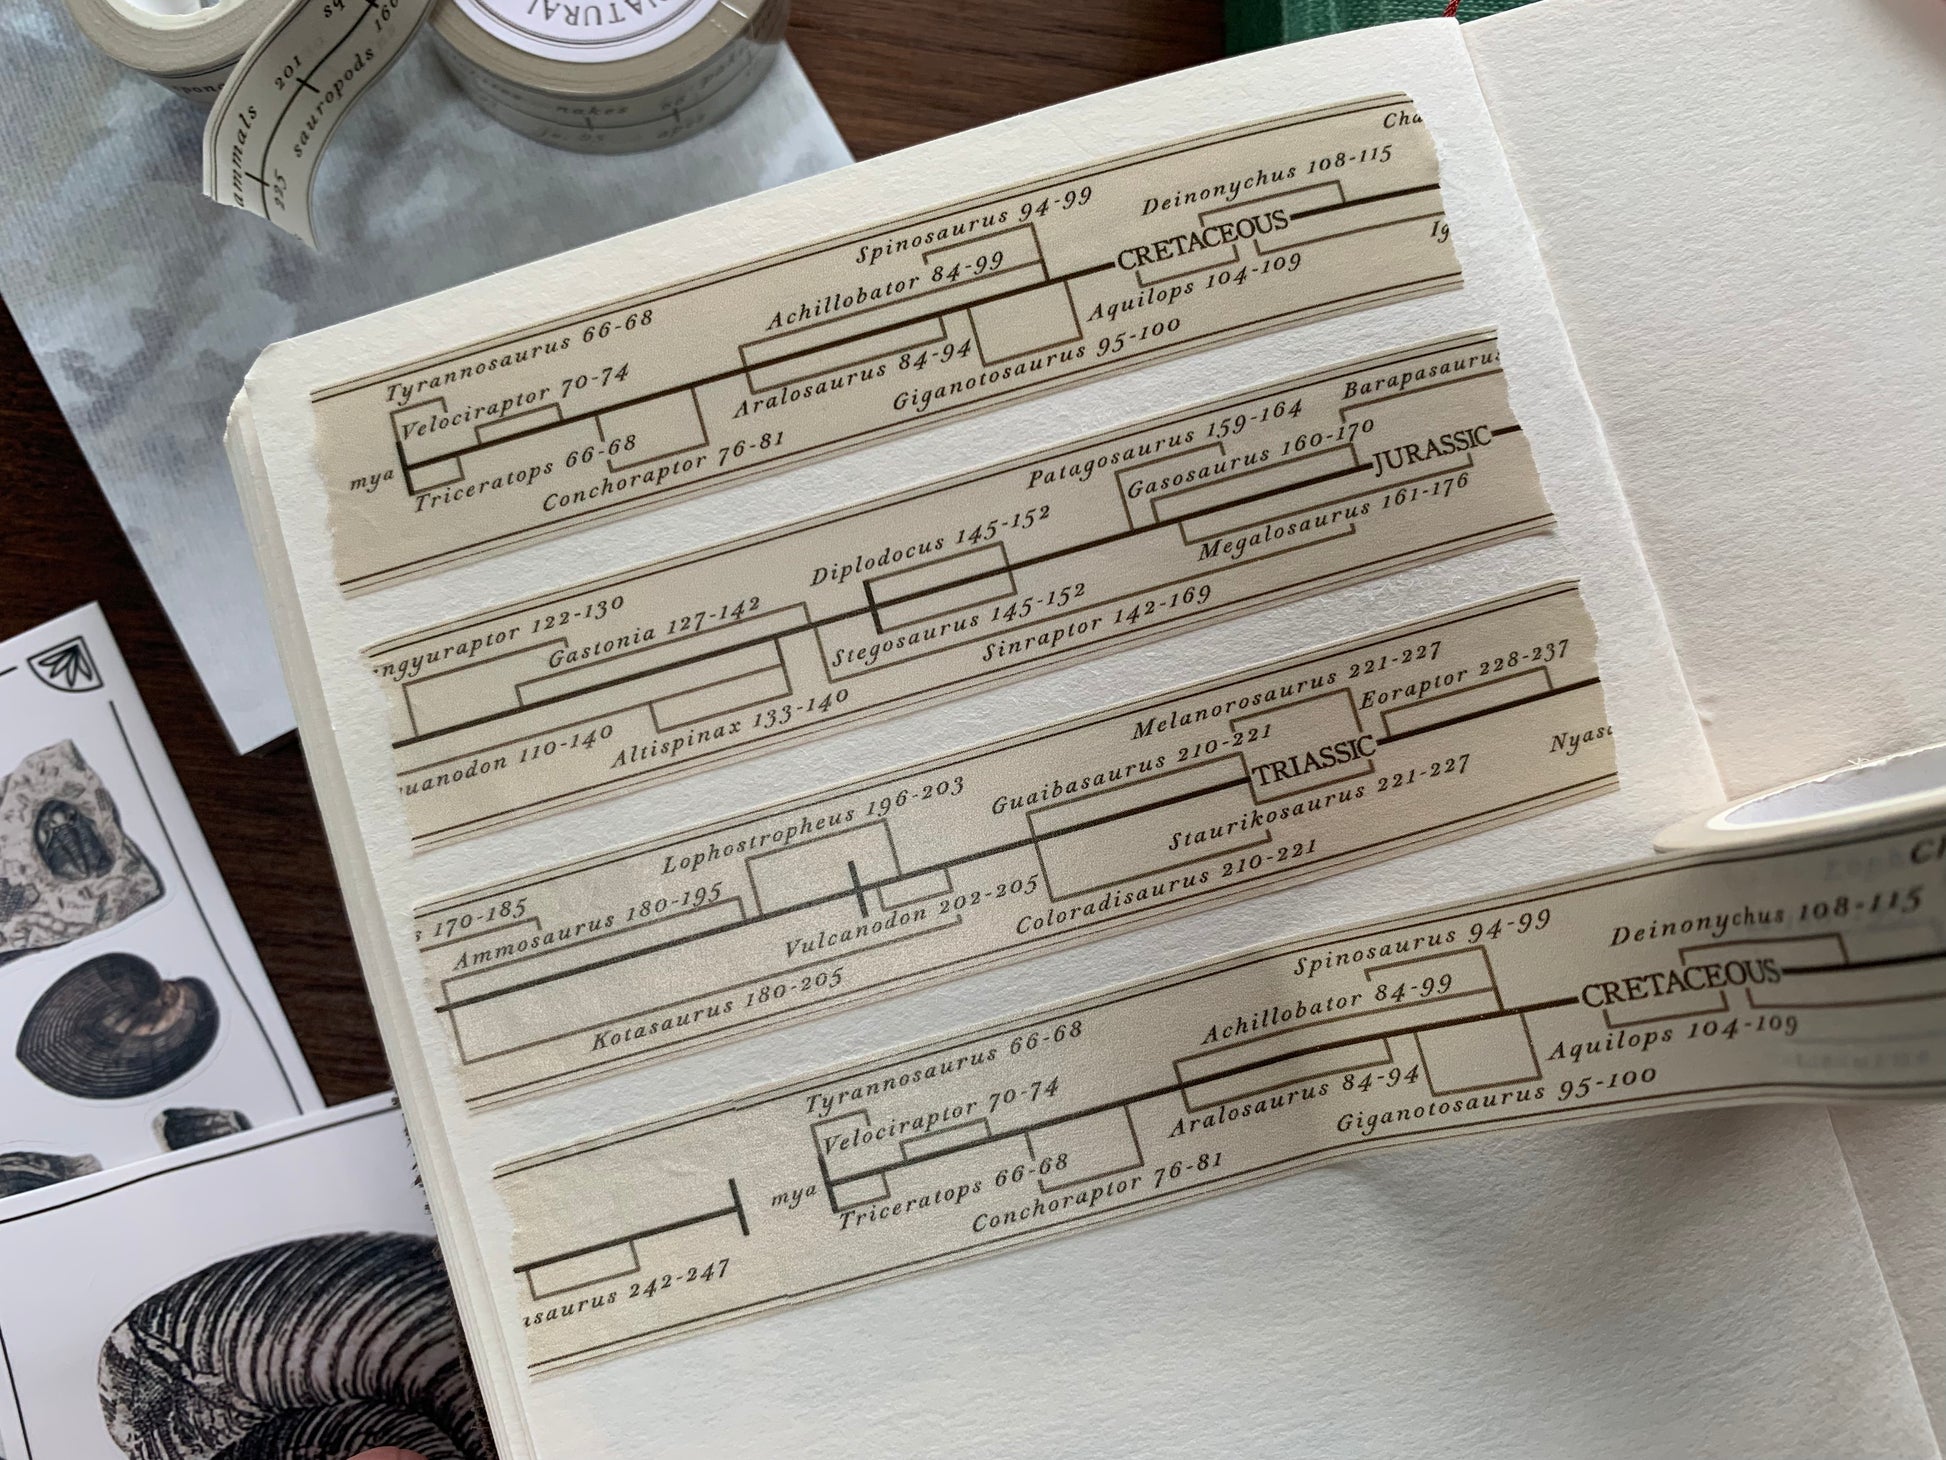 NATURAL
mammals 201
sauropods 160
225
snakes
Cha
Deinonychus 108-115
Spinosaurus 94-99
CRETACEOUS
Achillobator 84-99
Ig
Aquilops 104-109
Tyrannosaurus 66-68
Giganotosaurus 95-100
Aralosaurus 84-94
Velociraptor 70-74
mya
Triceratops 66-68
Conchoraptor 76-81
Barapasaurus
Patagosaurus 159-164
Gasosaurus 160-170
JURASSIC
Megalosaurus 161-176
Diplodocus 145-152
Stegosaurus 145-152
Sinraptor 142-169
ngyuraptor 122-130
Gastonia 127-142
uanodon 110-140
Altispinax 133-140
Melanorosaurus 221-227
Eoraptor 228-237
Guaibasaurus 210-221
TRIASSIC
Nyasa
Staurikosaurus 221-227
Lophostropheus 196-203
Coloradisaurus 210-221
s 170-185
Ammosaurus 180-195
Vulcanodon 202-205
Kotasaurus 180-205
Ch
Deinonychus 108-115
Spinosaurus 94-99
CRETACEOUS
Achillobator 84-99
Aquilops 104-109
Tyrannosaurus 66-68
Giganotosaurus 95-100
Aralosaurus 84-94
Velociraptor 70-74
mya
Triceratops 66-68
Conchoraptor 76-81
asaurus 242-247